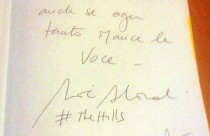 anche se ogni
tanto manca la
voce -
#TheHills